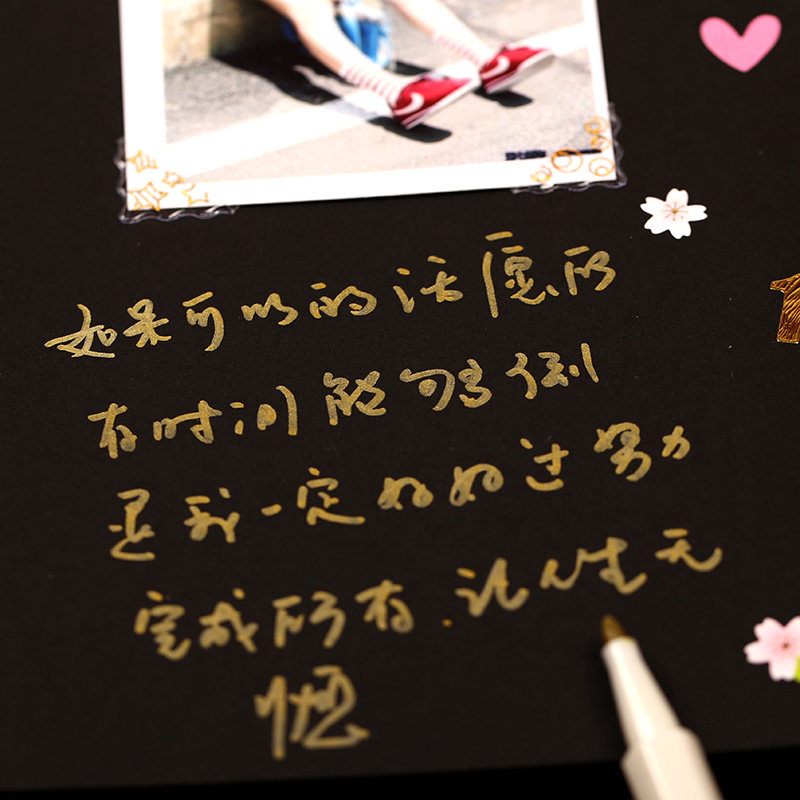 如果可以的话愿所
有时间能够倒
是我一定好好过努力
完成所有.让人生无
憾